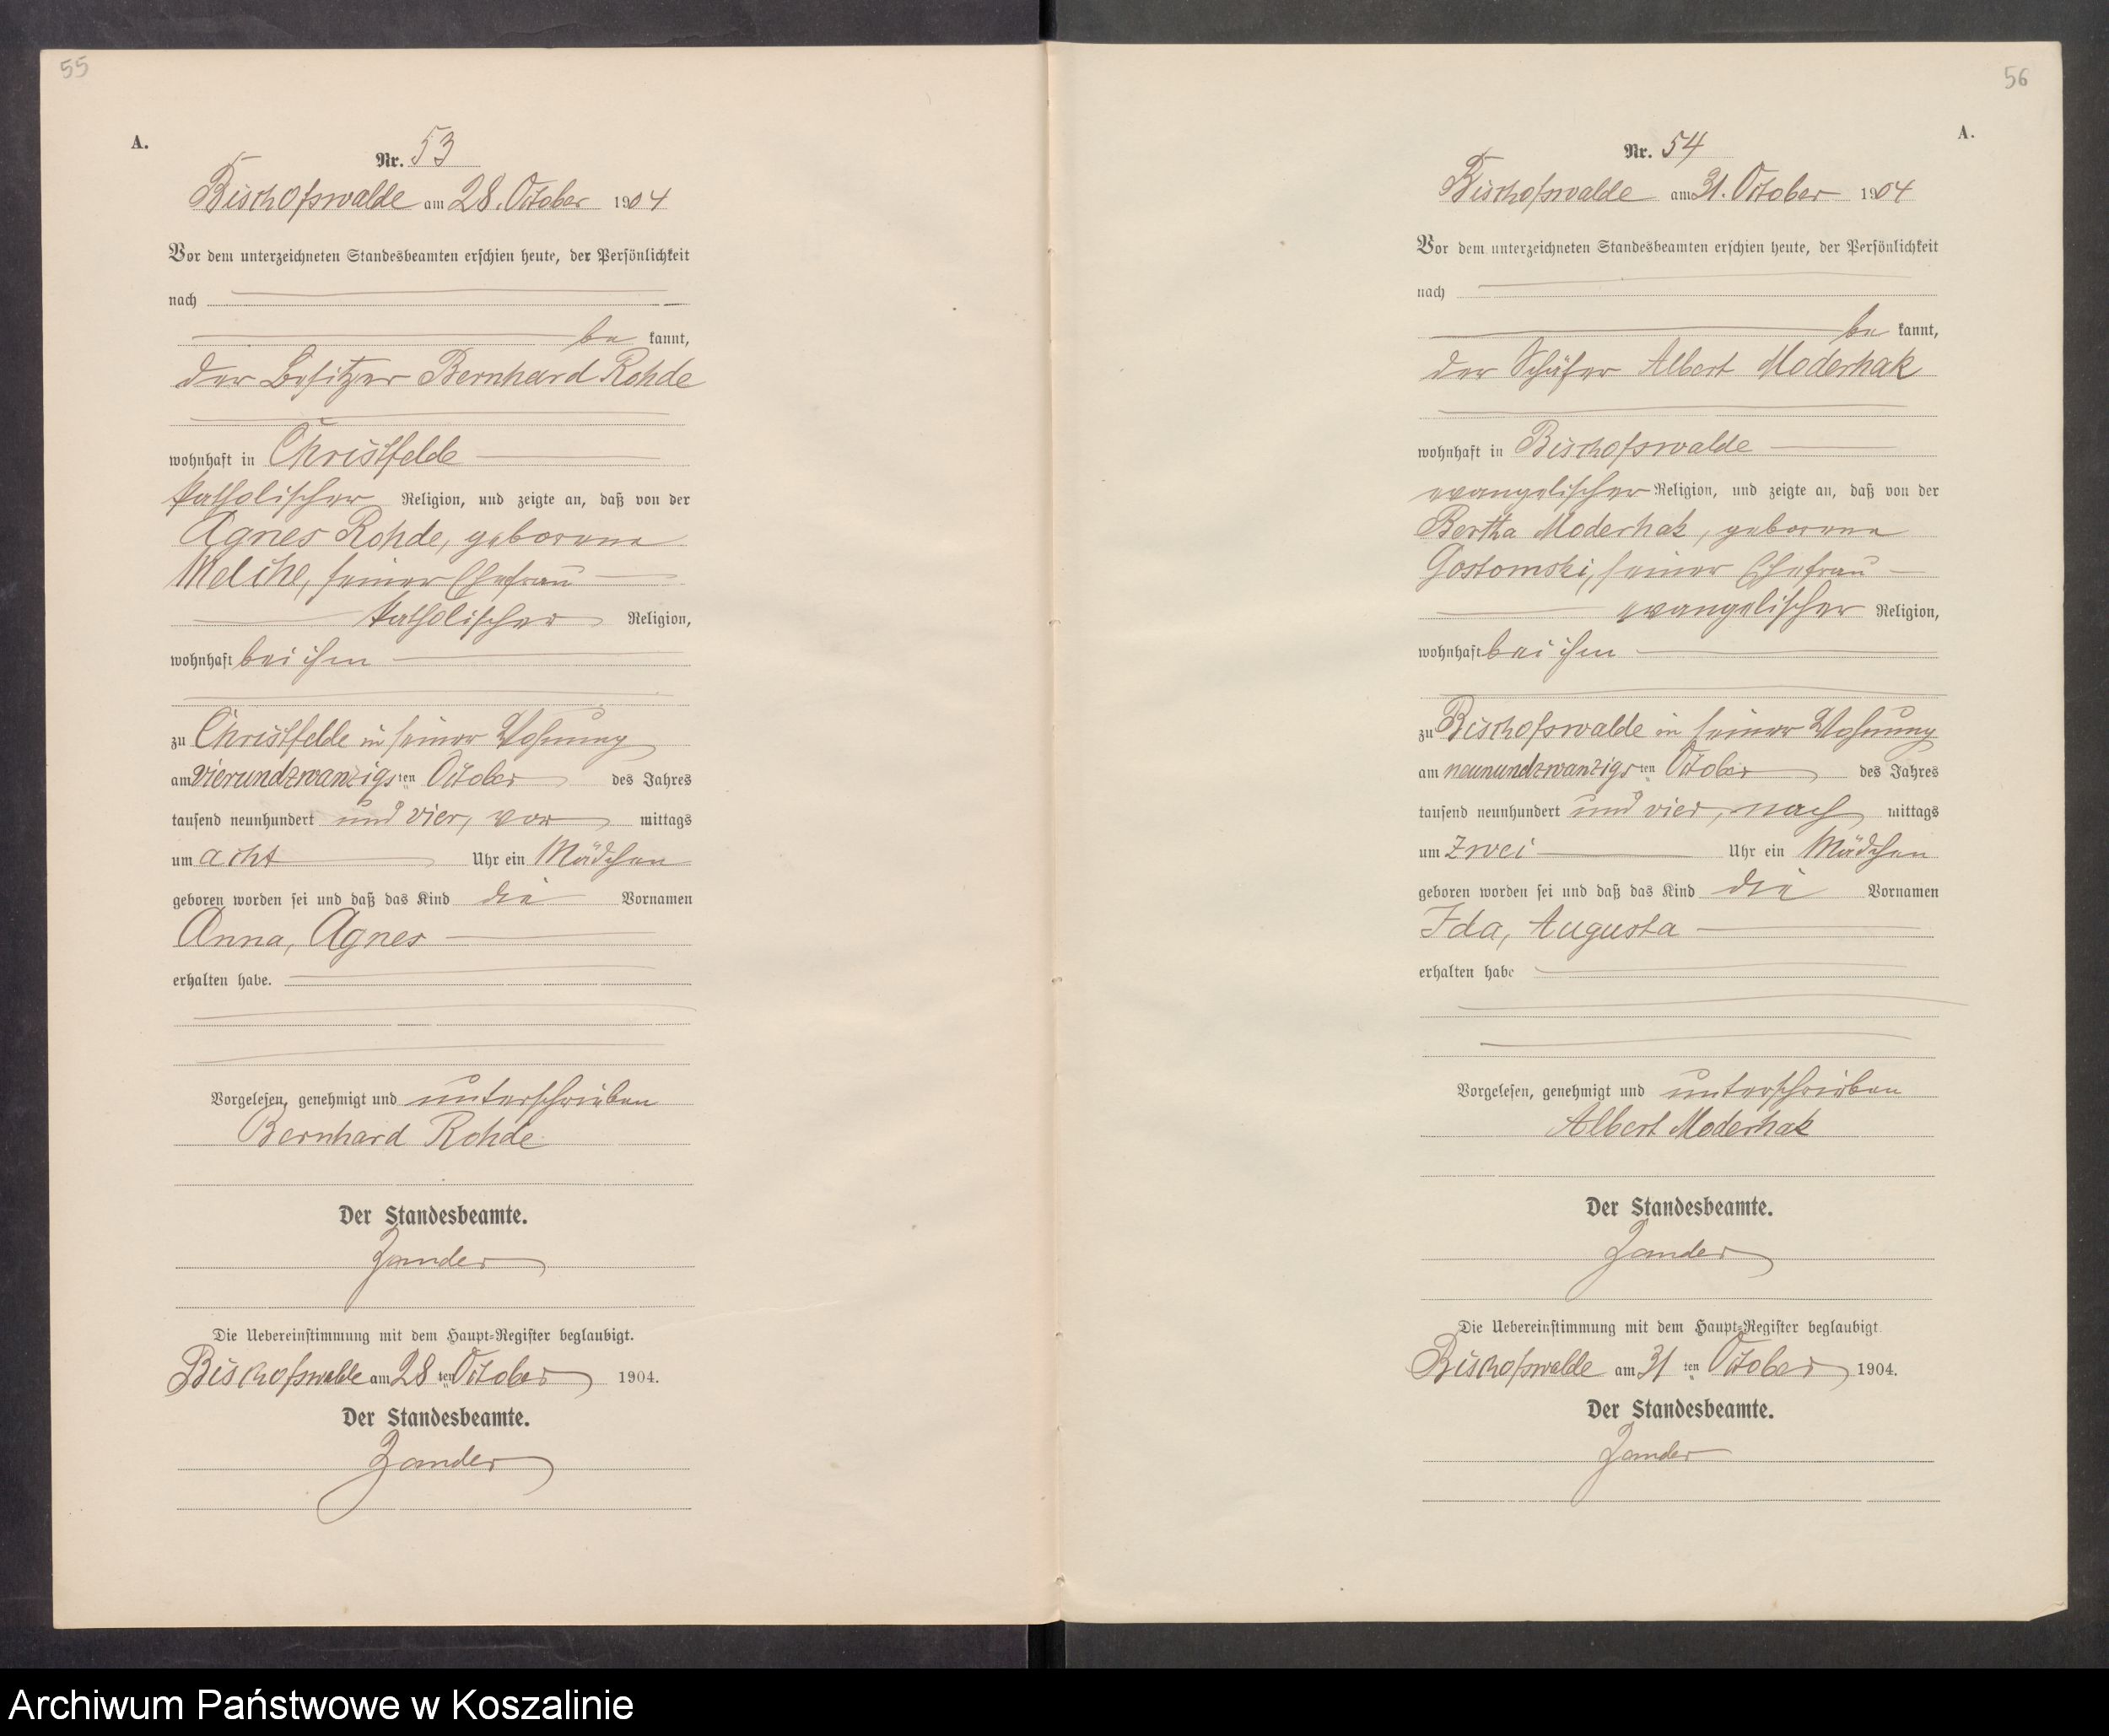 55
A.
Nr. 53
Bischofswalde am 28. October 1904
Vor dem unterzeichneten Standesbeamten erschien heute, der Persönlichkeit
nach
be kannt,
der Besitzer Bernhard Rohde
wohnhaft in Christfelde
katholischer Religion, und zeigte an, daß von der
Agnes Rohde, geborene
Melche, seiner Ehefrau
katholischer Religion,
wohnhaft bei ihm
zu Christfelde in seiner Wohnung
am vierundzwanzigsten October des Jahres
tausend neunhundert und vier, vor mittags
um acht Uhr ein Mädchen
geboren worden sei und daß das Kind die Vornamen
Anna, Agnes
erhalten habe.
Vorgelesen, genehmigt und unterschrieben
Bernhard Rohde
Der Standesbeamte.
Zander
Die Uebereinstimmung mit dem Haupt-Register beglaubigt.
Bischofswalde am 28 ten October 1904.
Der Standesbeamte.
Zander
56
A.
Nr. 54
Bischofswalde am 31. October 1904
Vor dem unterzeichneten Standesbeamten erschien heute, der Persönlichkeit
nach
be kannt,
der Schäfer Albert Moderhak
wohnhaft in Bischofswalde
evangelischer Religion, und zeigte an, daß von der
Bertha Moderhak, geborene
Gostomski, seiner Ehefrau
evangelischer Religion,
wohnhaft bei ihm
zu Bischofswalde in seiner Wohnung
am neunundzwanzigsten October des Jahres
tausend neunhundert und vier, nach mittags
um zwei Uhr ein Mädchen
geboren worden sei und daß das Kind die Vornamen
Ida, Augusta
erhalten habe
Vorgelesen, genehmigt und unterschrieben
Albert Moderhak
Der Standesbeamte.
Zander
Die Uebereinstimmung mit dem Haupt-Register beglaubigt.
Bischofswalde am 31 ten October 1904.
Der Standesbeamte.
Zander
Archiwum Państwowe w Koszalinie